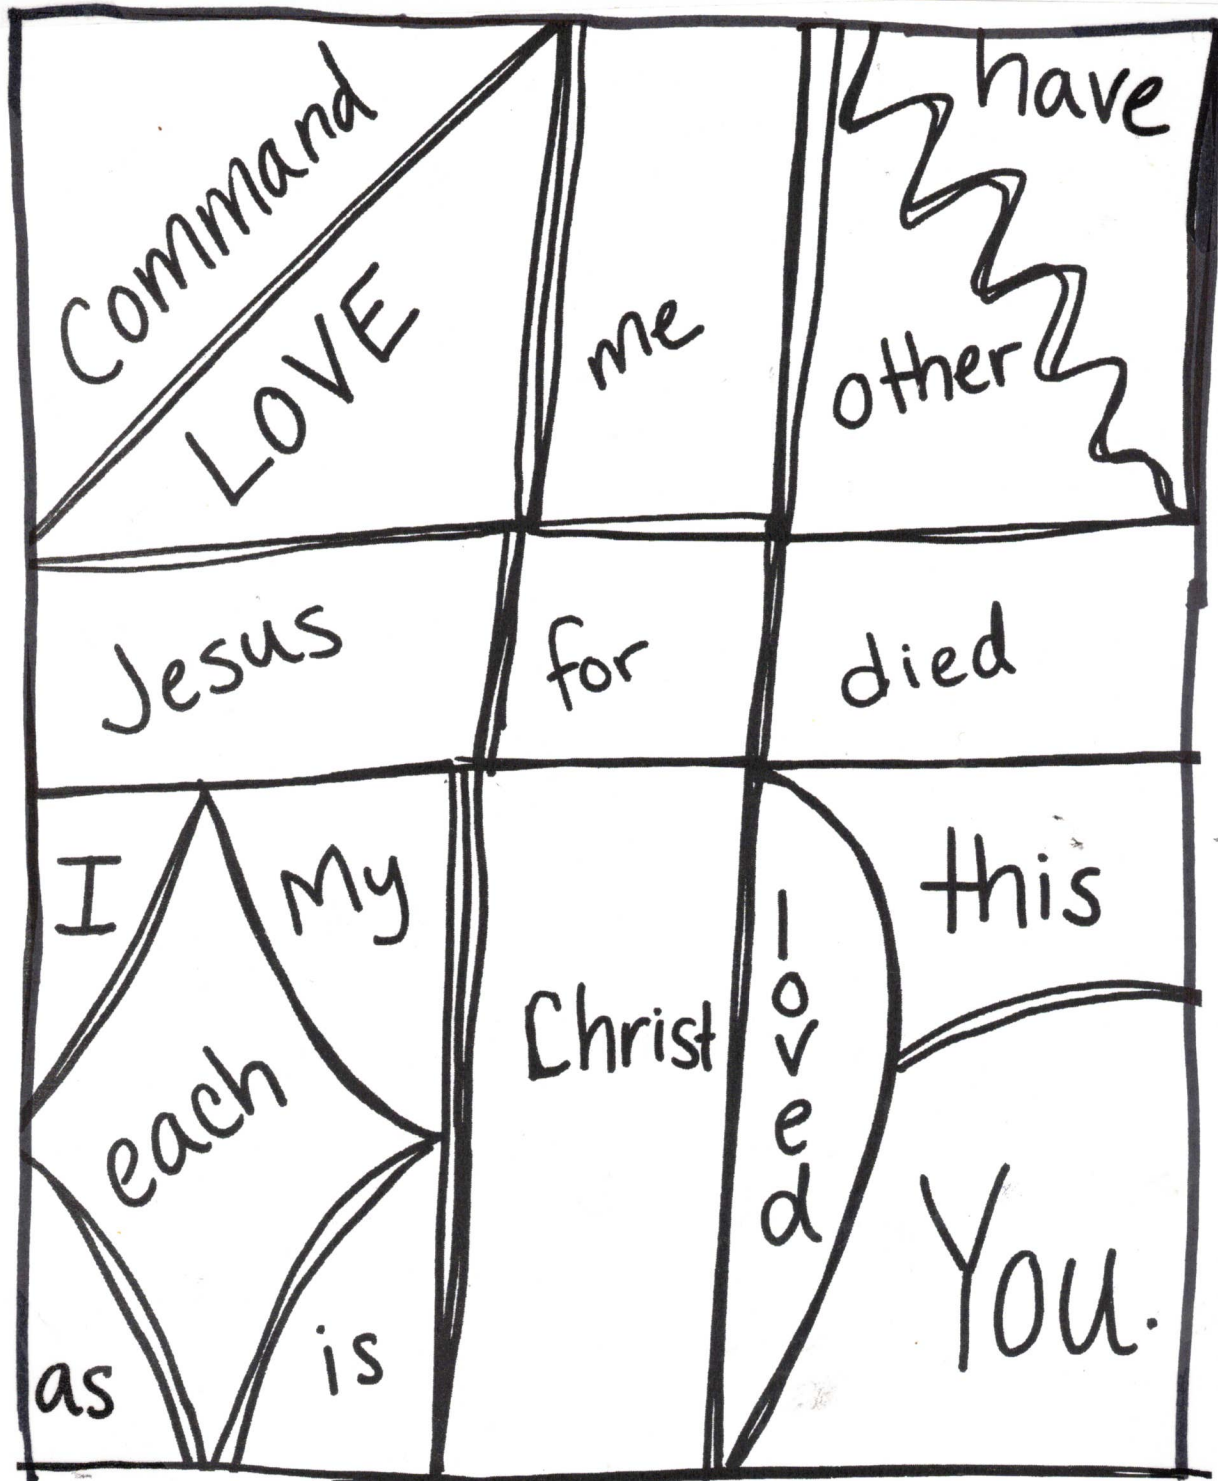 Command
LOVE
me
have
other
Jesus
for
died
I
My
each
as
is
Christ
loved
this
You.